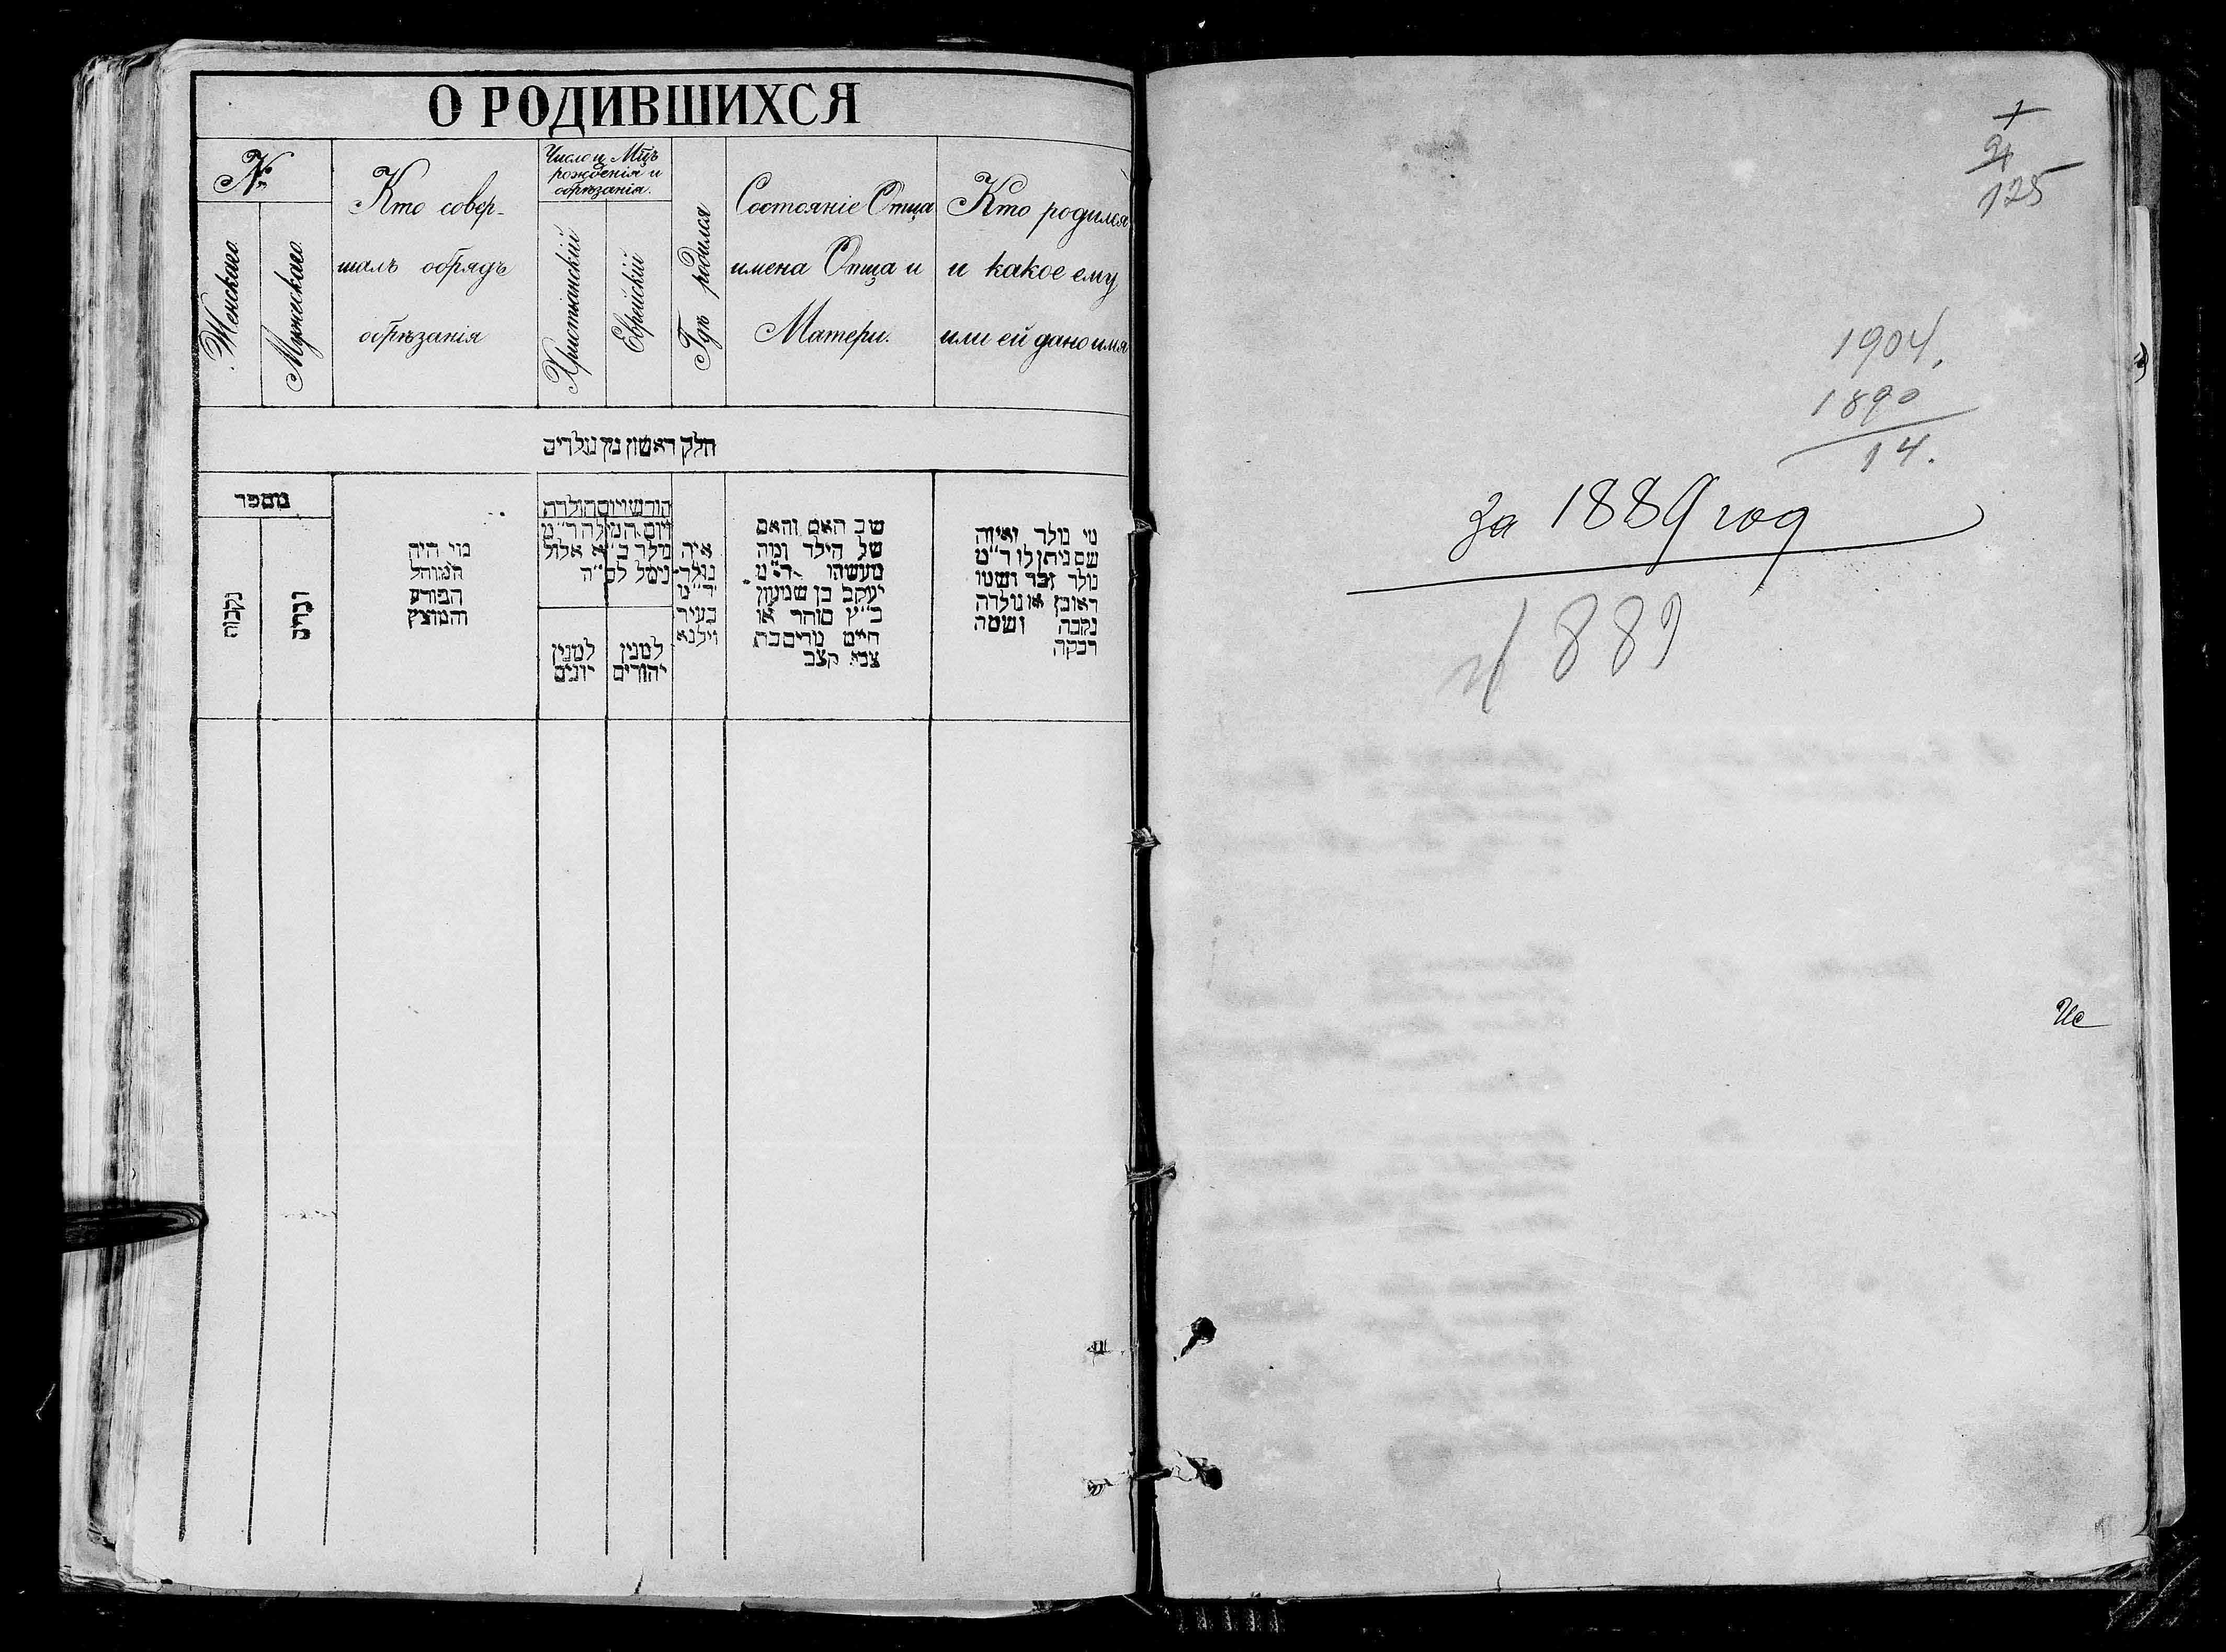 О РОДИВШИХСЯ
№
Женскаго.
Мужескаго.
Кто совер-
шалъ обрядъ
обрѣзанія
Число и Мцъ
рожденія и
обрѣзанія.
Христіанскій
Еврейскій
Гдѣ родился
Состояніе Отца
имена Отца и
Матери.
Кто родился
и какое ему
или ей дано имя
חלק ראשון מן נולדים
מספר
נקבות
זכרים
מי היה
המוהל
הפורע
והמוצץ
חודש ויום הולדת
ויום המילה ד״מ
נולד כ״א אלול
נימל
למנין
יונים
למנין
יהודים
איה
נולד
ד״מ
בעיר
וילנא
שב האם והאם
של הילד ומה
מעשהו ד״מ
יעקב בן שמעון
כ״ץ סוחר או
חיים מרים בת
צבי קצב
מי נולד ואיזה
שם ניתן לו ד״מ
נולד זכר ושמו
ראובן או נולדה
נקבה ושמה
רבקה
125
1904.
1890
14.
за 1889 год
1889